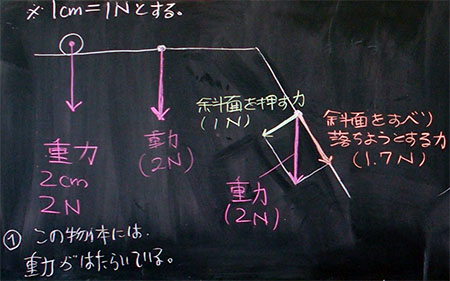 ※1cm=1Nとする。
重力
2cm
2N
重力
(2N)
斜面を押す力
(1N)
斜面をすべり
落ちようとする力
(1.7N)
重力
(2N)
① この物体には
重力がはたらいている。